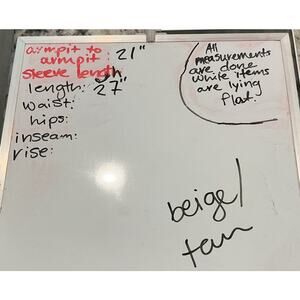 armpit to
armpit: 21"
sleeve length
length: 27"
waist:
hips:
inseam:
rise:
All
measurements
are done
while items
are lying
flat.
beige/
tan